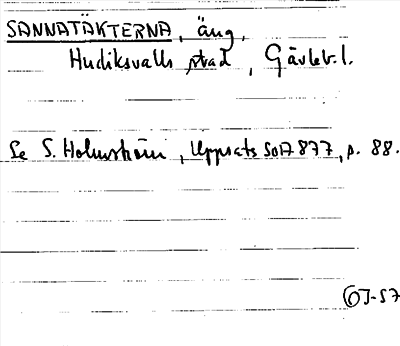 SANNATÄKTERNA, äng,
Hudiksvalls stad, Gävleb. l.
Se S. Holmström, Uppsats SOF 877, p. 88.
OJ-57